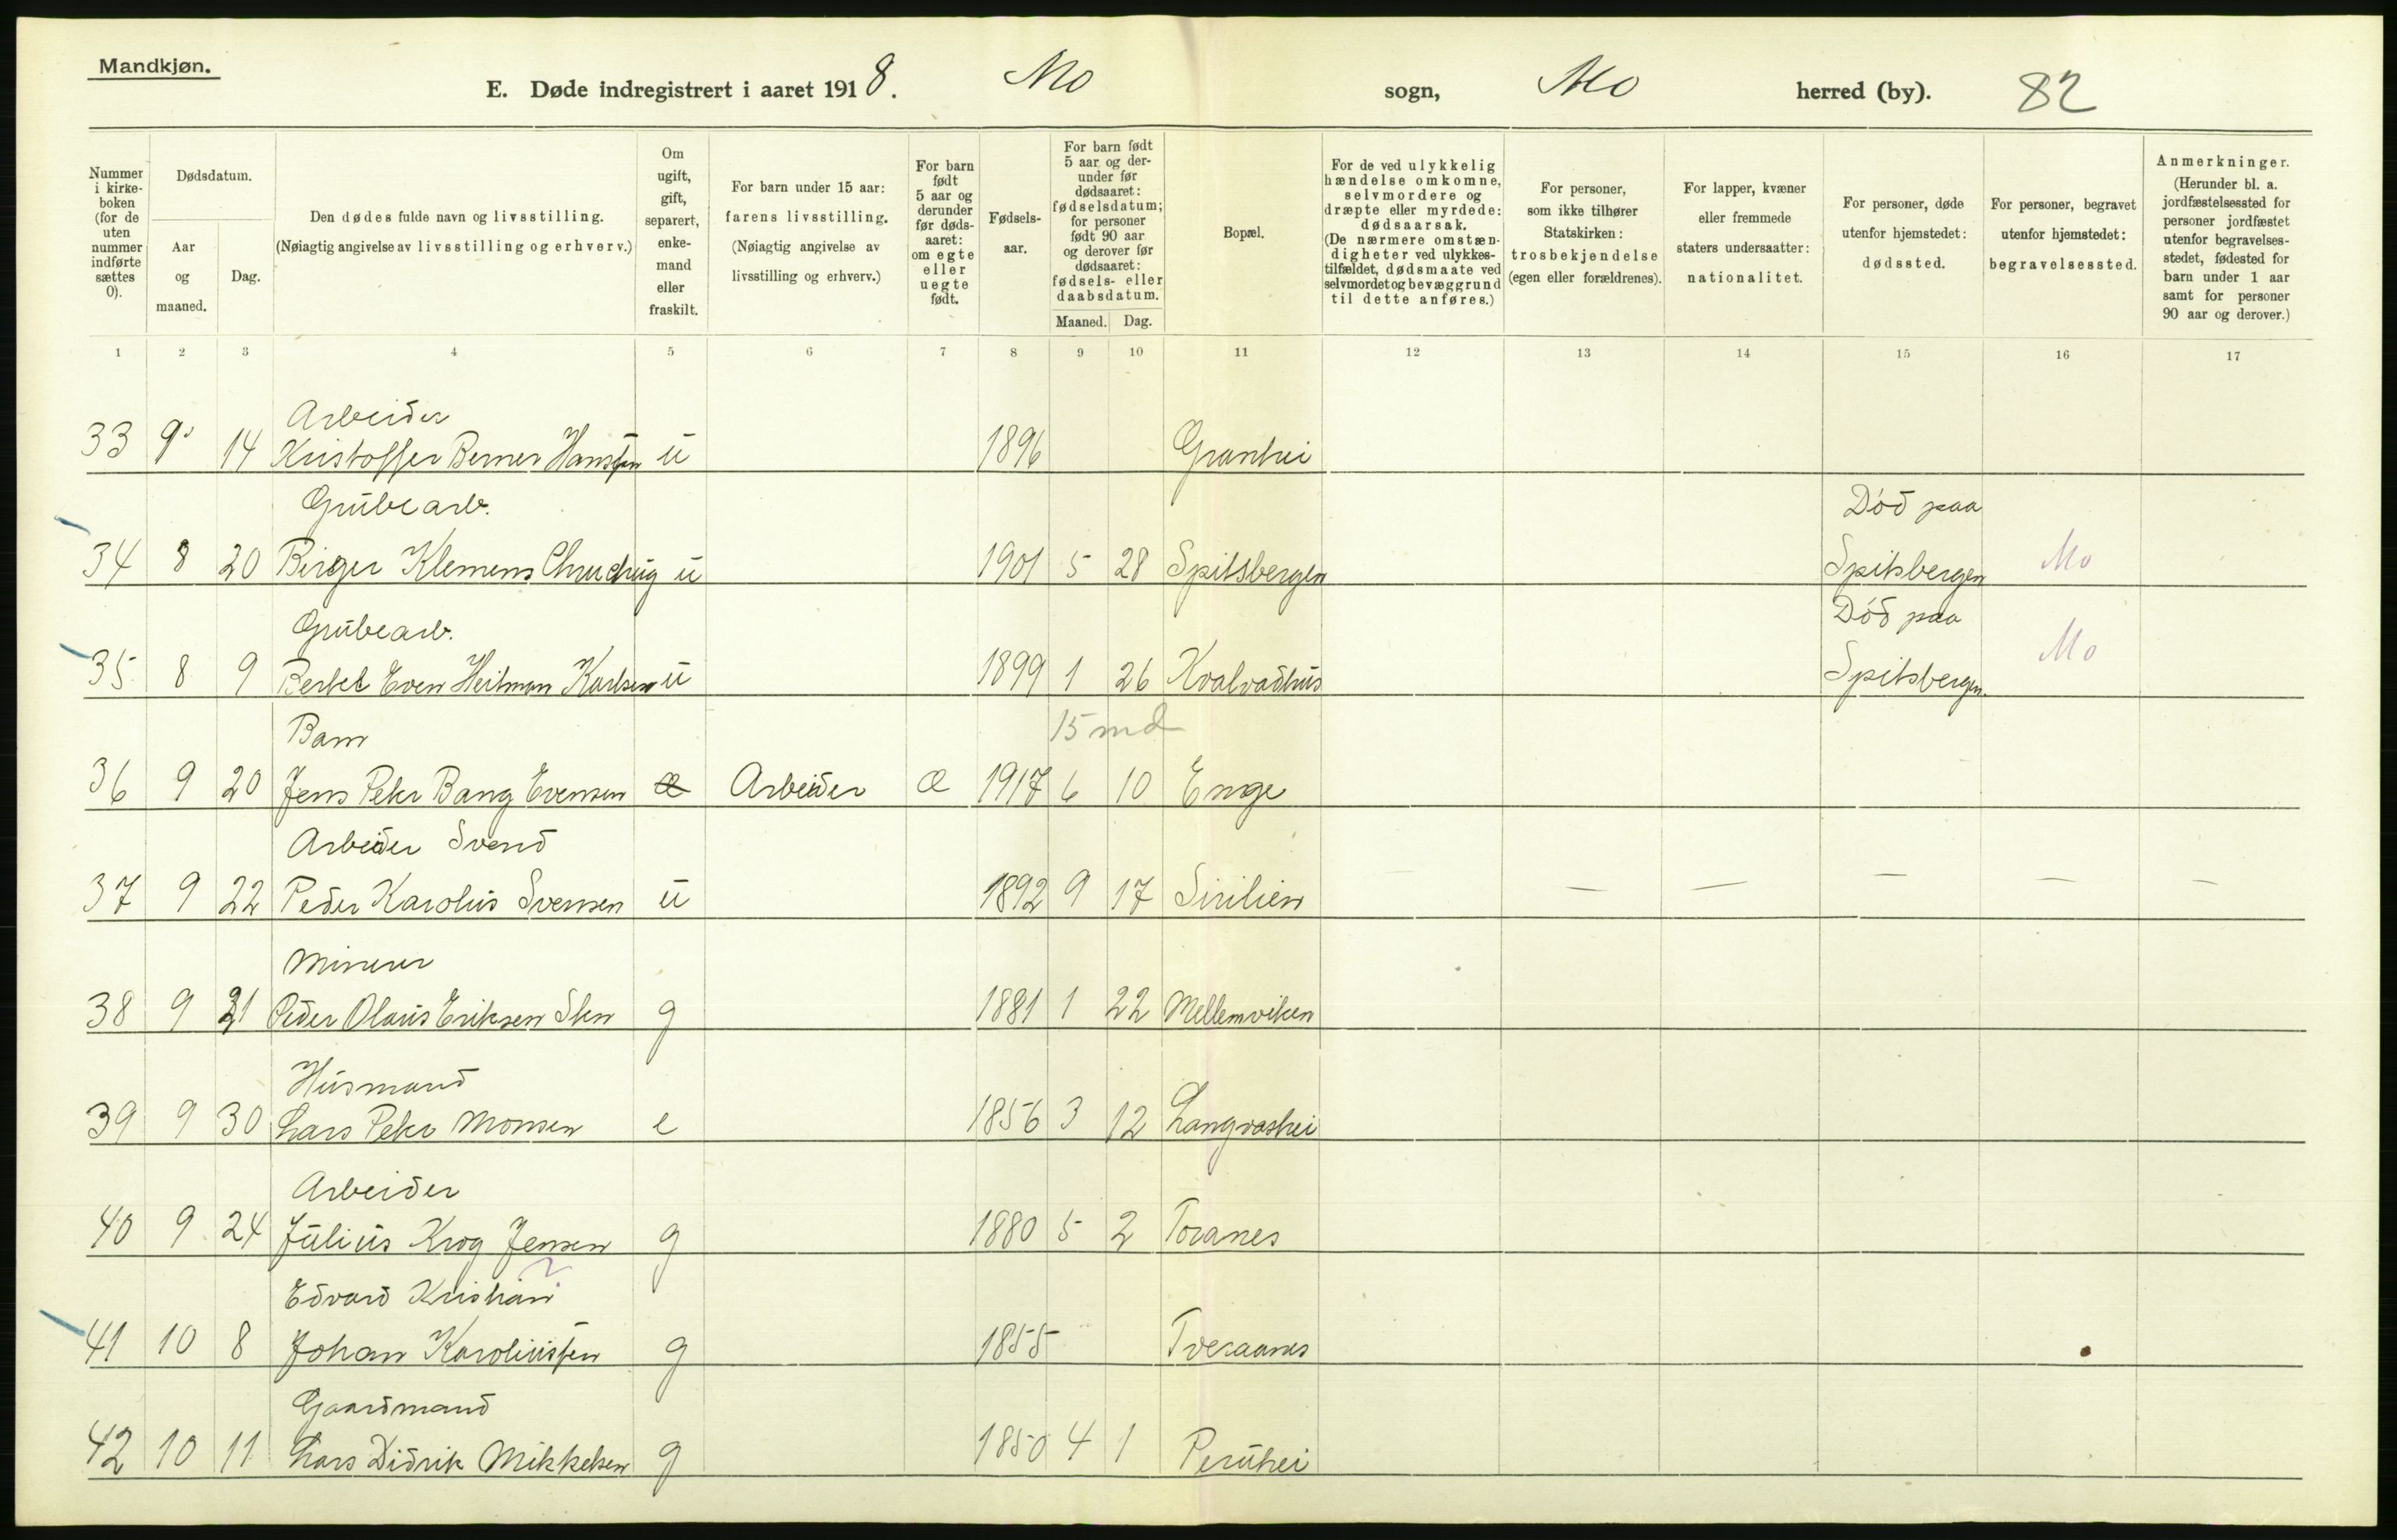 Mandkjøn.
E. Døde indregistrert i aaret 1918. Mo sogn, Mo herred (by). 82
Nummer i kirke-boken (for de uten nummer indførte sættes 0).
Dødsdatum.
Aar og maaned.
Dag.
Den dødes fulde navn og livsstilling.
(Nøiagtig angivelse av livsstilling og erhverv.)
Om ugift, gift, separert, enke-mand eller fraskilt.
For barn under 15 aar: farens livsstilling.
(Nøiagtig angivelse av livsstilling og erhverv.)
For barn født 5 aar og derunder før døds-aaret: om egte eller uegte født.
Fødsels-aar.
For barn født 5 aar og der-under før dødsaaret: fødselsdatum; for personer født 90 aar og derover før dødsaaret: fødsels- eller daabsdatum.
Maaned. Dag.
Bopæl.
For de ved ulykkelig hændelse omkomne, selvmordere og dræpte eller myrdede: dødsaarsak.
(De nærmere omstæn-digheter ved ulykkes-tilfældet, dødsmaate ved selvmordet og bevæggrund til dette anføres.)
For personer, som ikke tilhører Statskirken: trosbekjendelse (egen eller forældrenes).
For lapper, kvæner eller fremmede staters undersaatter: nationalitet.
For personer, døde utenfor hjemstedet: dødssted.
For personer, begravet utenfor hjemstedet: begravelsessted.
Anmerkninger.
(Herunder bl. a. jordfæstelsessted for personer jordfæstet utenfor begravelses-stedet, fødested for barn under 1 aar samt for personer 90 aar og derover.)
1 2 3 4 5 6 7 8 9 10 11 12 13 14 15 16 17
Arbeider
33 9 14 Kristoffer Berner Hanssen u 1896 Granhei
Grubearb. Død paa
34 8 20 Birger Klemens u 1901 5 28 Spitsbergen Spitsbergen Mo
Grubearb. Død paa
35 8 9 Bertel Even Heitman Karlsen u 1899 1 26 Spitsbergen. Mo
Barn 15 md
36 9 20 Jens Peter Bang Evensen æ Arbeider æ 1917 6 10 Enge
Arbeider Svend
37 9 22 Peder Karolius Svensen u 1892 9 17 Sirilien — — — — —
Minerer
38 9 21 Peder Olaus Eriksen g 1881 1 22 Mellemviken
Husmand
39 9 30 Lars Peter Monsen e 1856 3 12 Langvashei
Arbeider
40 9 24 Julius Krog Jensen g 1880 5 2 Toranes
Edvard Kristian
41 10 8 Johan Karoliussen g 1855 Tveraanes
Gaardmand
42 10 11 Lars Didrik Mikkelsen g 1850 4 1 Peruhei